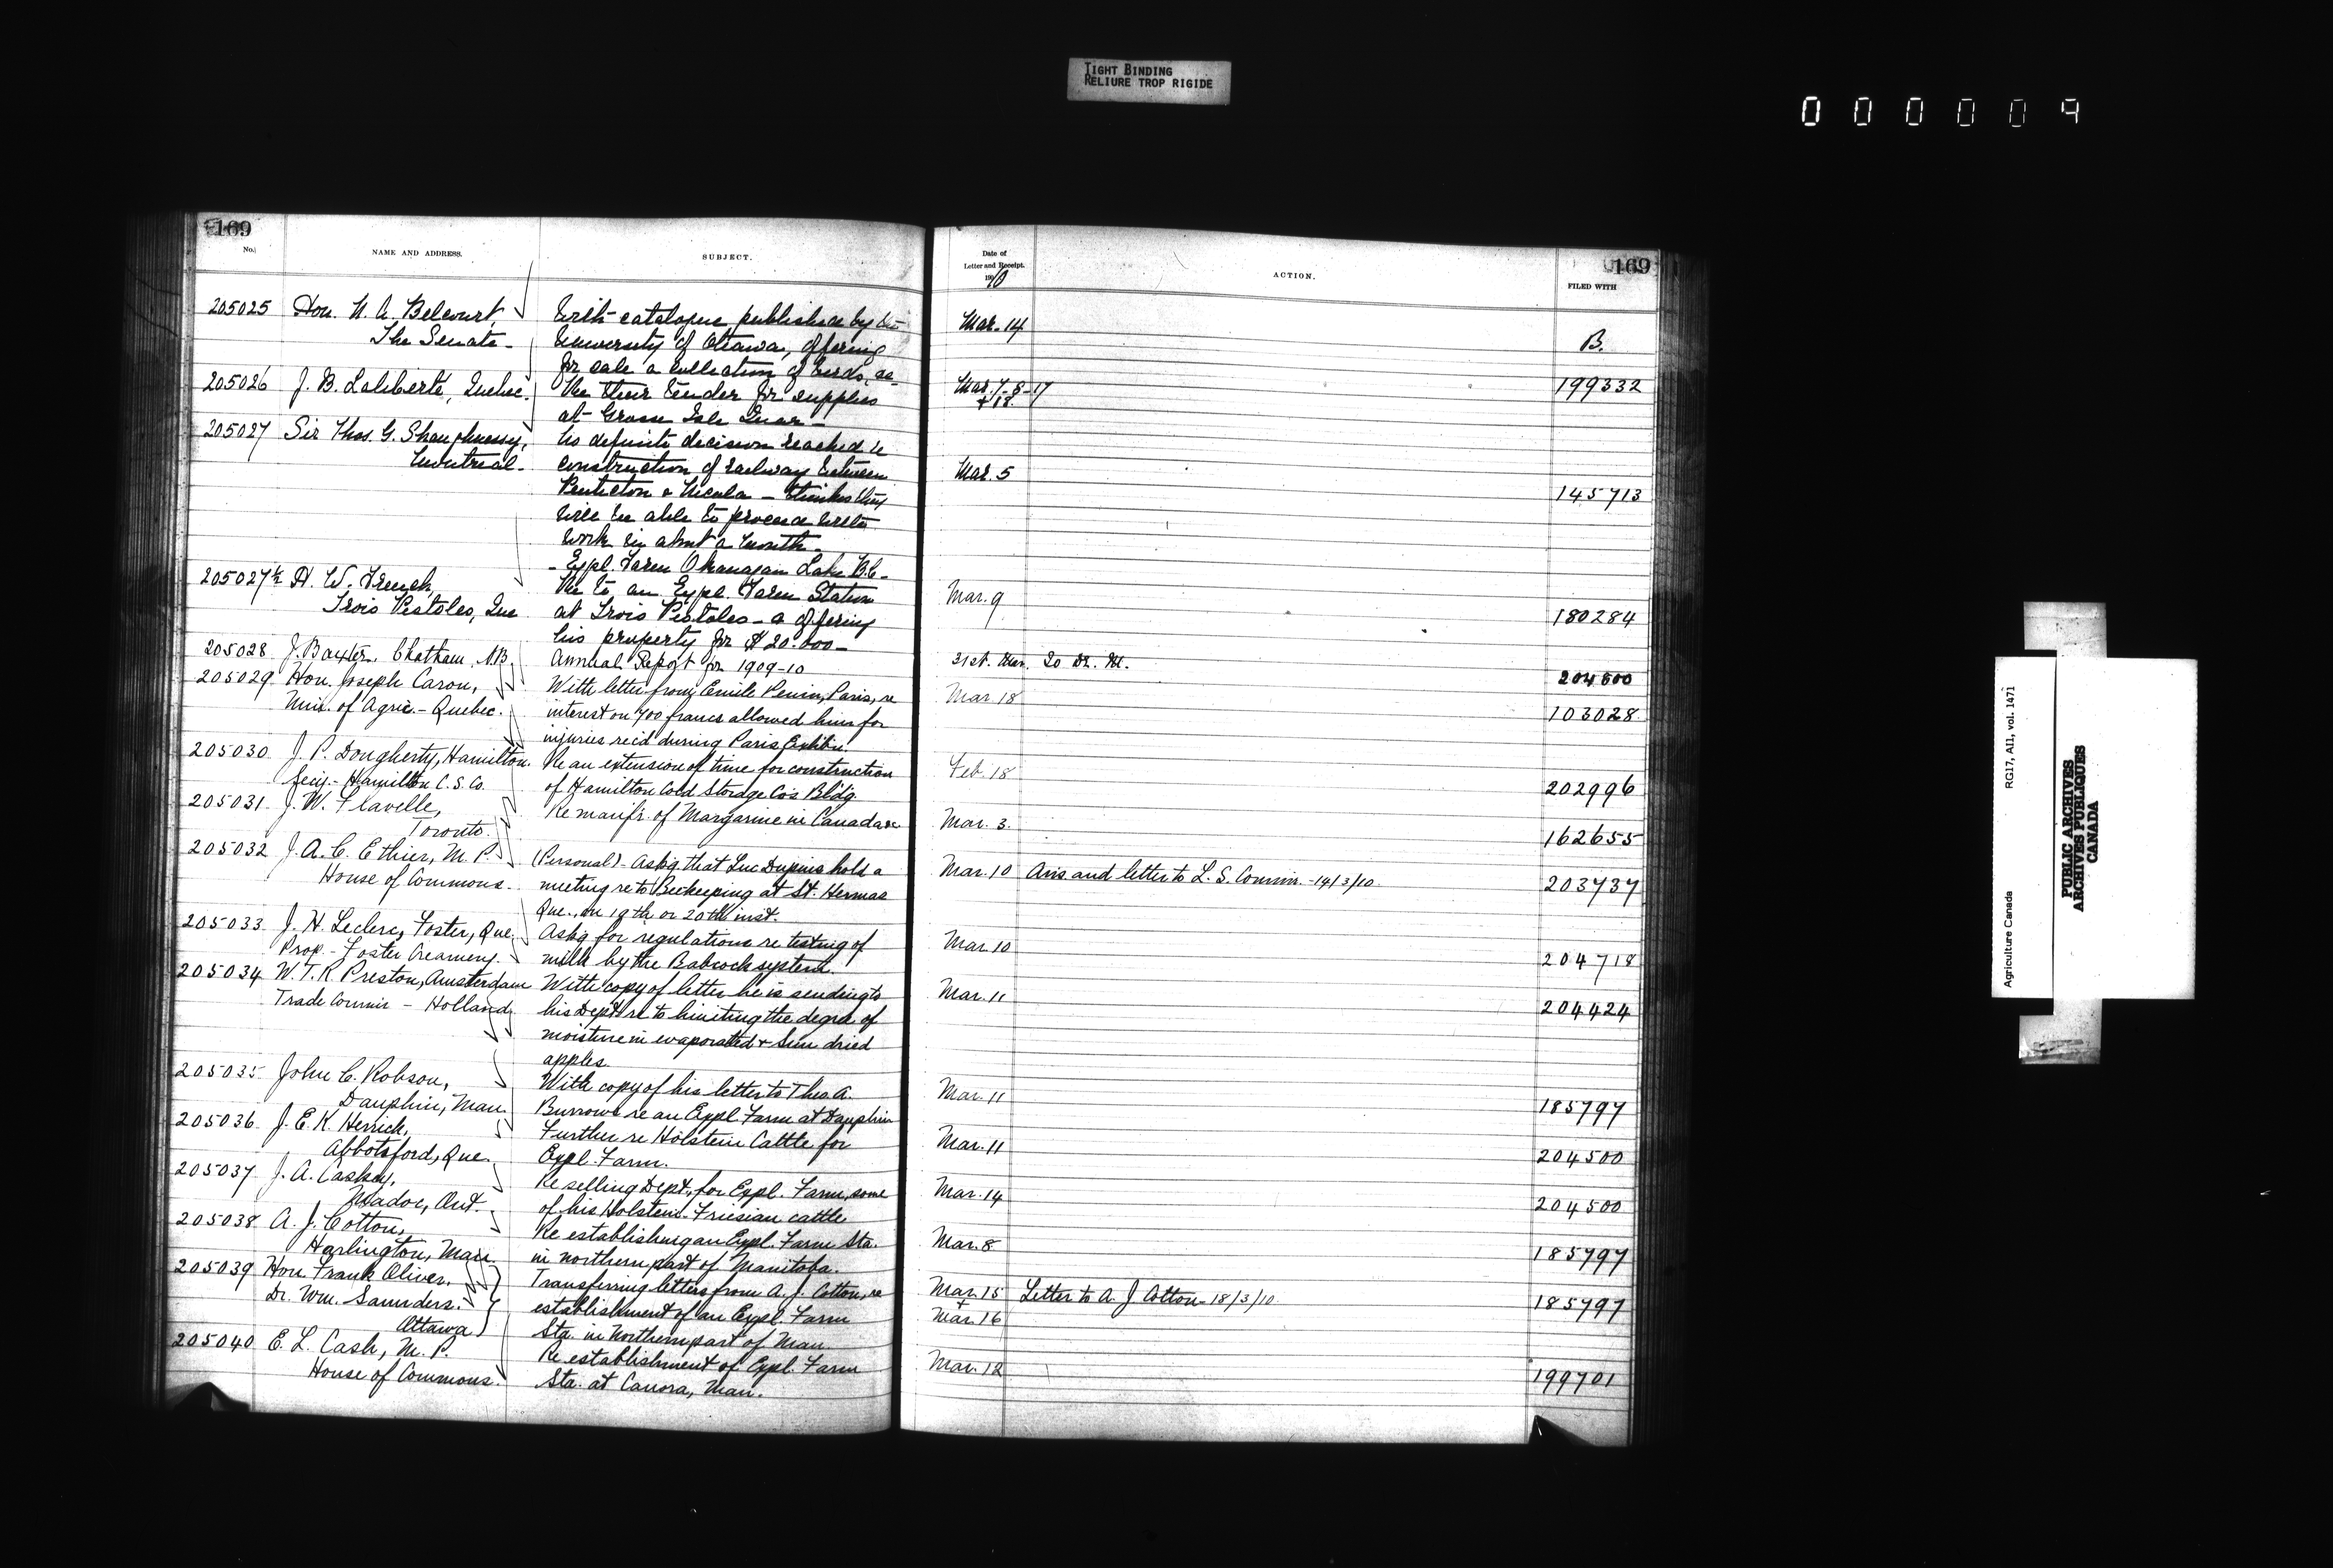 TIGHT BINDING
RELIURE TROP RIGIDE
000009
169
No.
NAME AND ADDRESS.
SUBJECT.
205025 Hon. N. A. Belcourt,
The Senate -
With catalogue published by the
University of Ottawa, offering
for sale a collection of birds, &c
205026 J. B. Laliberté, Quebec.
Re their tender for supplies
at Grosse Isle Quar -
205027 Sir Thos. G. Shaughnessy,
Montreal -
No definite decision reached re
construction of railway between
Penticton & Nicola - thinks they
will be able to proceed with
work in about a month -
- Expl. Farm Okanagan Lake B.C. -
205027½ H. W. French,
Trois Pistoles, Que
Re to, an Expl. Farm Station
at Trois Pistoles - & offering
his property for $20.000 -
205028 J. Baxter, Chatham, N.B.
Annual Report for 1909-10
205029 Hon. Joseph Caron,
Min. of Agric. - Quebec.
With letter from Emile Penin, Paris, re
interest on 700 francs allowed him for
injuries rec'd during Paris Exhib'n
205030 J. P. Dougherty, Hamilton.
Secy. - Hamilton C. S. Co.
Re an extension of time for construction
of Hamilton Cold Storage Co's Bldg.
205031 J. W. Flavelle,
Toronto.
Re manfr. of Margarine in Canada &c
205032 J. A. C. Ethier, M. P.
House of Commons.
(Personal) - Askg that Luc Dupuis hold a
meeting re to Beekeeping at St. Hermas
Que., on 19th or 20th inst.
205033 J. H. Leclerc, Foster, Que.
Prop. - Foster Creamery.
Askg for regulations re testing of
milk by the Babcock system.
205034 W. T. R. Preston, Amsterdam
Trade Commr - Holland
With copy of letter he is sending to
his Dept re to limiting the degree of
moisture in evaporated & sun dried
apples.
205035 John C. Robson,
Dauphin, Man.
With copy of his letter to Theo. A.
Burrows re an Expl. Farm at Dauphin
205036 J. E. K. Herrick,
Abbotsford, Que.
Further re Holstein Cattle for
Expl. Farm.
205037 J. A. Caskey,
Madoc, Ont.
Re selling Dept., for Expl. Farm, some
of his Holstein-Friesian cattle
205038 A. J. Cotton,
Harlington, Man.
Re establishing an Expl. Farm Sta.
in northern part of Manitoba.
205039 Hon. Frank Oliver.
Dr. Wm. Saunders.
Ottawa
Transferring letters from A. J. Cotton, re
establishment of an Expl. Farm
Sta. in Northern part of Man.
205040 E. L. Cash, M. P.
House of Commons.
Re establishment of Expl. Farm
Sta. at Canora, Man.
169
Date of
Letter and Receipt.
1910
ACTION.
FILED WITH
Mar. 14
B.
199332
Mar. 7-8-17
+ 18.
Mar. 5
145713
Mar. 9
180284
31st. Mar. To Dr. M.
204600
Mar 18
103028
Feb. 18
202996
Mar. 3
162655
Mar. 10 Avis and letter to L. S. Commr. - 14/3/10
203737
Mar. 10
204718
Mar. 11
204424
Mar. 11
185797
Mar. 11
204500
Mar. 14
204500
Mar. 8
185797
Mar. 15 Letter to A. J Cotton - 18/3/10
+
Mar. 16
185797
Mar. 12
199701
Agriculture Canada RG17, AII, vol. 1471
PUBLIC ARCHIVES
ARCHIVES PUBLIQUES
CANADA